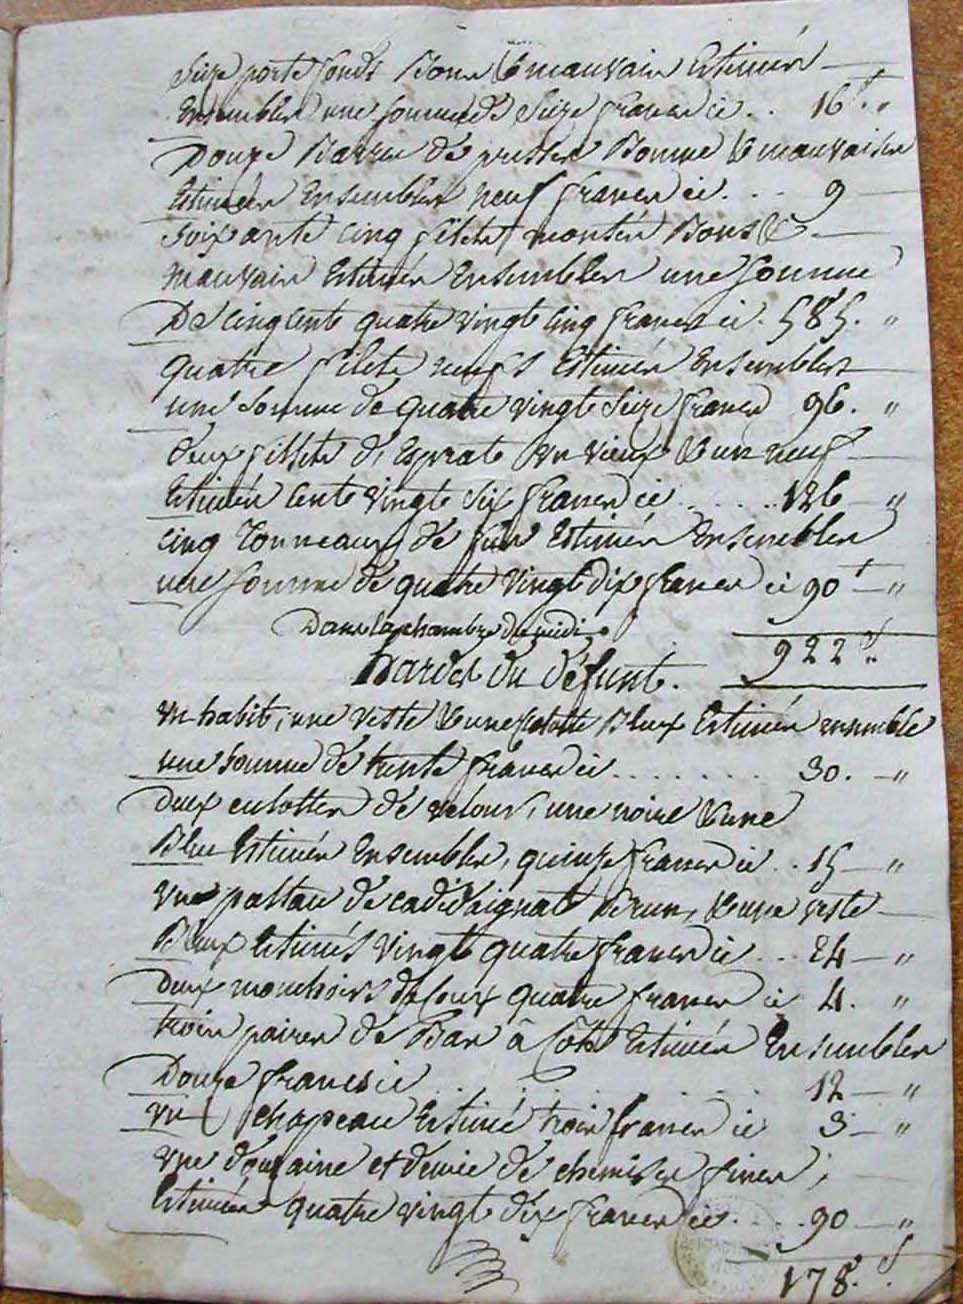 Seize porte fonds Bons & mauvais Estimés
Ensembles une somme de Seize francs ci .. 16 f. "
Douze Barres de presses Bonnes & mauvaises
Estimées Ensembles neuf francs ci ... 9
Soixante cinq filets montés Bons &
mauvais Estimés Ensembles une Somme
De cinq cents quatre vingt cinq francs ci . 585. "
quatre filets neufs Estimés Ensembles
une Somme de quatre vingt Seize francs 96. "
deux filets d'esprats un vieux & un neuf
Estimés cents vingt six francs ci ...... 126 "
cinq Tonneaux de Estimés Ensembles
une Somme de quatre vingt dix francs ci 90 f "
Dans la chambre du midi
922 f.
hardes du défunt.
un habit, une veste & une culotte Bleux Estimés ensemble
une Somme de trente francs ci ......... 30. "
deux culottes de velour, une noire & une
Bleu Estimées Ensembles, quinze francs ci .. 15 "
une paltau de Brun, & une veste
Bleux Estimés vingt quatre francs ci ... 24 "
deux mouchoirs de Coux quatre francs ci 4. "
trois paires de Bas à Côte Estimés Ensembles
Douze francs ci ...... 12 "
un chapeau Estimé trois francs ci 3 "
une douzaine et demie de chemises fines,
Estimées quatre vingt dix francs ci .... 90 "
178 f.